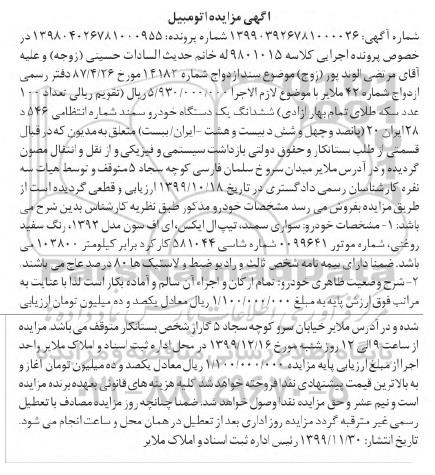 آگهی مزایده اتومبیل
شماره آگهی: ۱۳۹۹۰۳۹۲۶۷۸۱۰۰۰۰۲۶ شماره پرونده: ۱۳۹۸۰۴۰۲۶۷۸۱۰۰۰۹۵۵ در
خصوص پرونده اجرایی کلاسه ۹۸۰۱۰۱۵ له خانم حدیث السادات حسینی (زوجه) و علیه
آقای مرتضی الوند پور (زوج) موضوع سند ازدواج شماره ۱۴۱۸۲ مورخ ۸۷/۴/۲۶ دفتر رسمی
ازدواج شماره ۴۲ ملایر با موضوع لازم الاجرا ۵/۹۳۰/۰۰۰/۰۰۰ ریال (تقویم ریالی تعداد ۱۰۰
عدد سکه طلای تمام بهار آزادی) ششدانگ یک دستگاه خودرو سمند شماره انتظامی ۵۴۶ د
۲۸ ایران ۲۰ (پانصد و چهل و شش د بیست و هشت - ایران/ بیست) متعلق به مدیون که در قبال
قسمتی از طلب بستانکار و حقوق دولتی بازداشت سیستمی و فیزیکی و از نقل و انتقال مصون
گردیده و در آدرس ملایر میدان سروخ سلمان فارسی کوچه سجاد ۵ متوقف و توسط هیات سه
نفره کارشناسان رسمی دادگستری در تاریخ ۱۳۹۹/۱۰/۱۸ ارزیابی و قطعی گردیده است از
طریق مزایده بفروش می رسد مشخصات خودرو مذکور طبق نظریه کارشناس بدین شرح می
باشد: ۱- مشخصات خودرو: سواری سمند، تیپ ال ایکس، ای اف سون مدل ۱۳۹۳، رنگ سفید
روغنی، شماره موتور ۰۰۹۹۶۴۱ شماره شاسی ۵۸۱۰۴۴ کارکرد برابر کیلومتر ۱۰۳۸۰۰ می
باشد. ضمنا دارای بیمه نامه شخص ثالث و رادیو ضبط و لاستیک ها ۸۰ درصد عاج می باشند.
۲- شرح وضعیت ظاهری خودرو: تمام ارکان و اجزاء آن سالم و آماده بکار است لذا با عنایت به
مراتب فوق ارزش پایه به مبلغ ۱/۱۰۰/۰۰۰/۰۰۰ ریال معادل یکصد و ده میلیون تومان ارزیابی
شده و در آدرس ملایر خیابان سرو کوچه سجاد ۵ گاراژ شخص بستانکار متوقف می باشد. مزایده
از ساعت ۹ الی ۱۲ روز شنبه مورخ ۱۳۹۹/۱۲/۱۶ در محل اداره ثبت اسناد و املاک ملایر واحد
اجرا از مبلغ ارزیابی پایه مزایده ۱/۱۰۰/۰۰۰/۰۰۰ ریال معادل یکصد و ده میلیون تومان آغاز و
به بالاترین قیمت پیشنهادی نقدا فروخته خواهد شد. کلیه هزینه های قانونی بعهده برنده مزایده
است و نیم عشر و حق مزایده نقدا وصول خواهد شد. ضمنا چنانچه روز مزایده مصادف با تعطیل
رسمی غیر مترقبه گردد مزایده روز اداری بعد از تعطیل در همان محل و ساعت انجام می شود.
تاریخ انتشار: ۱۳۹۹/۱۱/۳۰ رئیس اداره ثبت اسناد و املاک ملایر